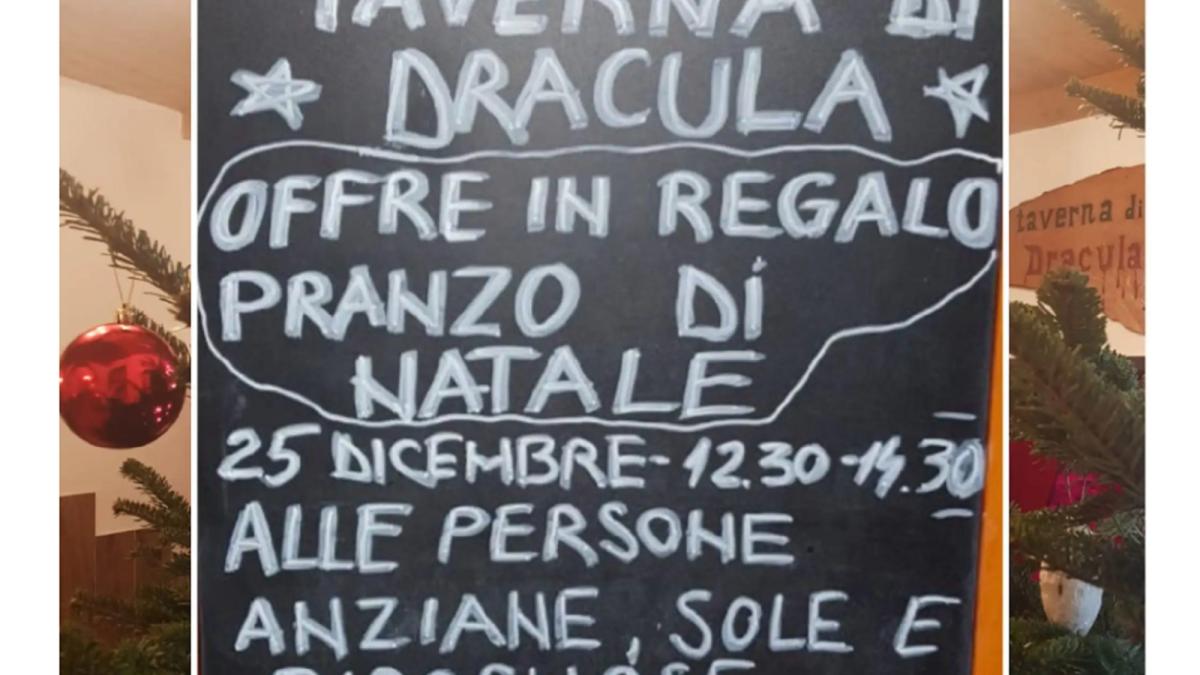 TAVERNA DI
DRACULA
OFFRE IN REGALO
PRANZO DI
NATALE
25 DICEMBRE - 12.30 - 14.30
ALLE PERSONE
ANZIANE, SOLE E
taverna di
Dracula